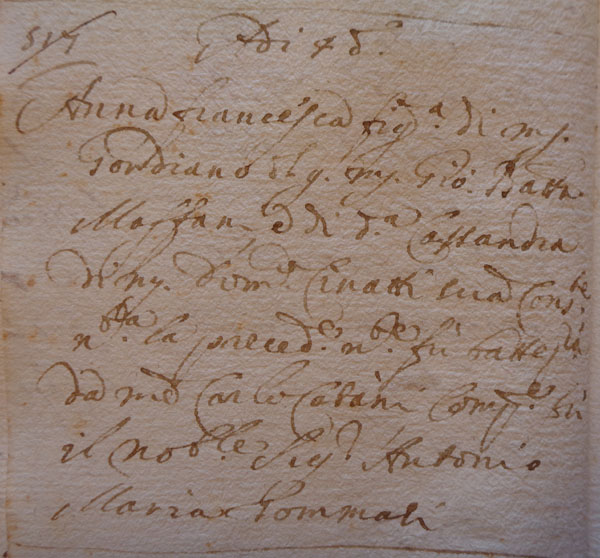 Adi 4 d.º
Anna Francesca fig.ª di m.
Gordiano del q. m. Gio. Batta
Maffan e di d.ª Cassandra
di m. Dom.co Cinatti sua Cons.te
n.ta la preced.e n.te fù battez.ta
da me Carlo Catani Comp.e fù
il nob.le Sig.r Antonio
Maria Tommasi